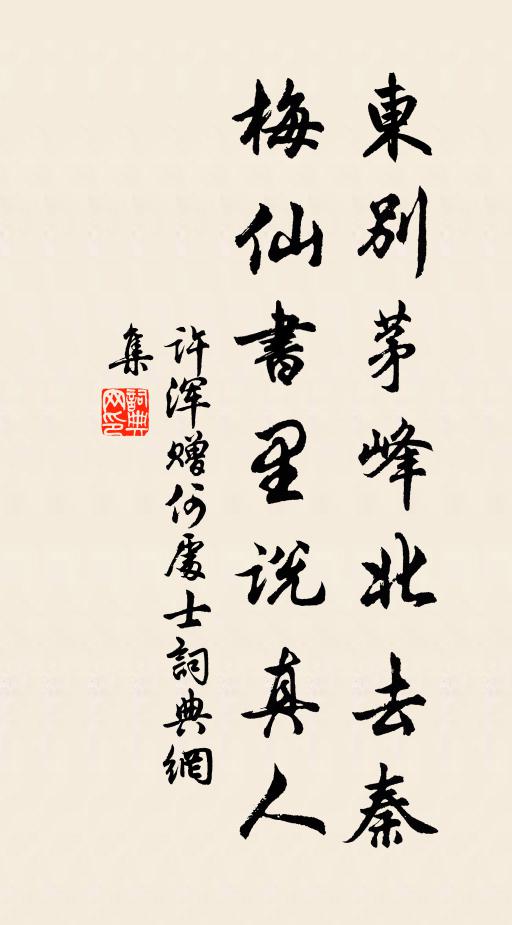 東別茅峰北去秦
梅仙書里説真人
许渾赠何處士詞典網
集
詞典網印